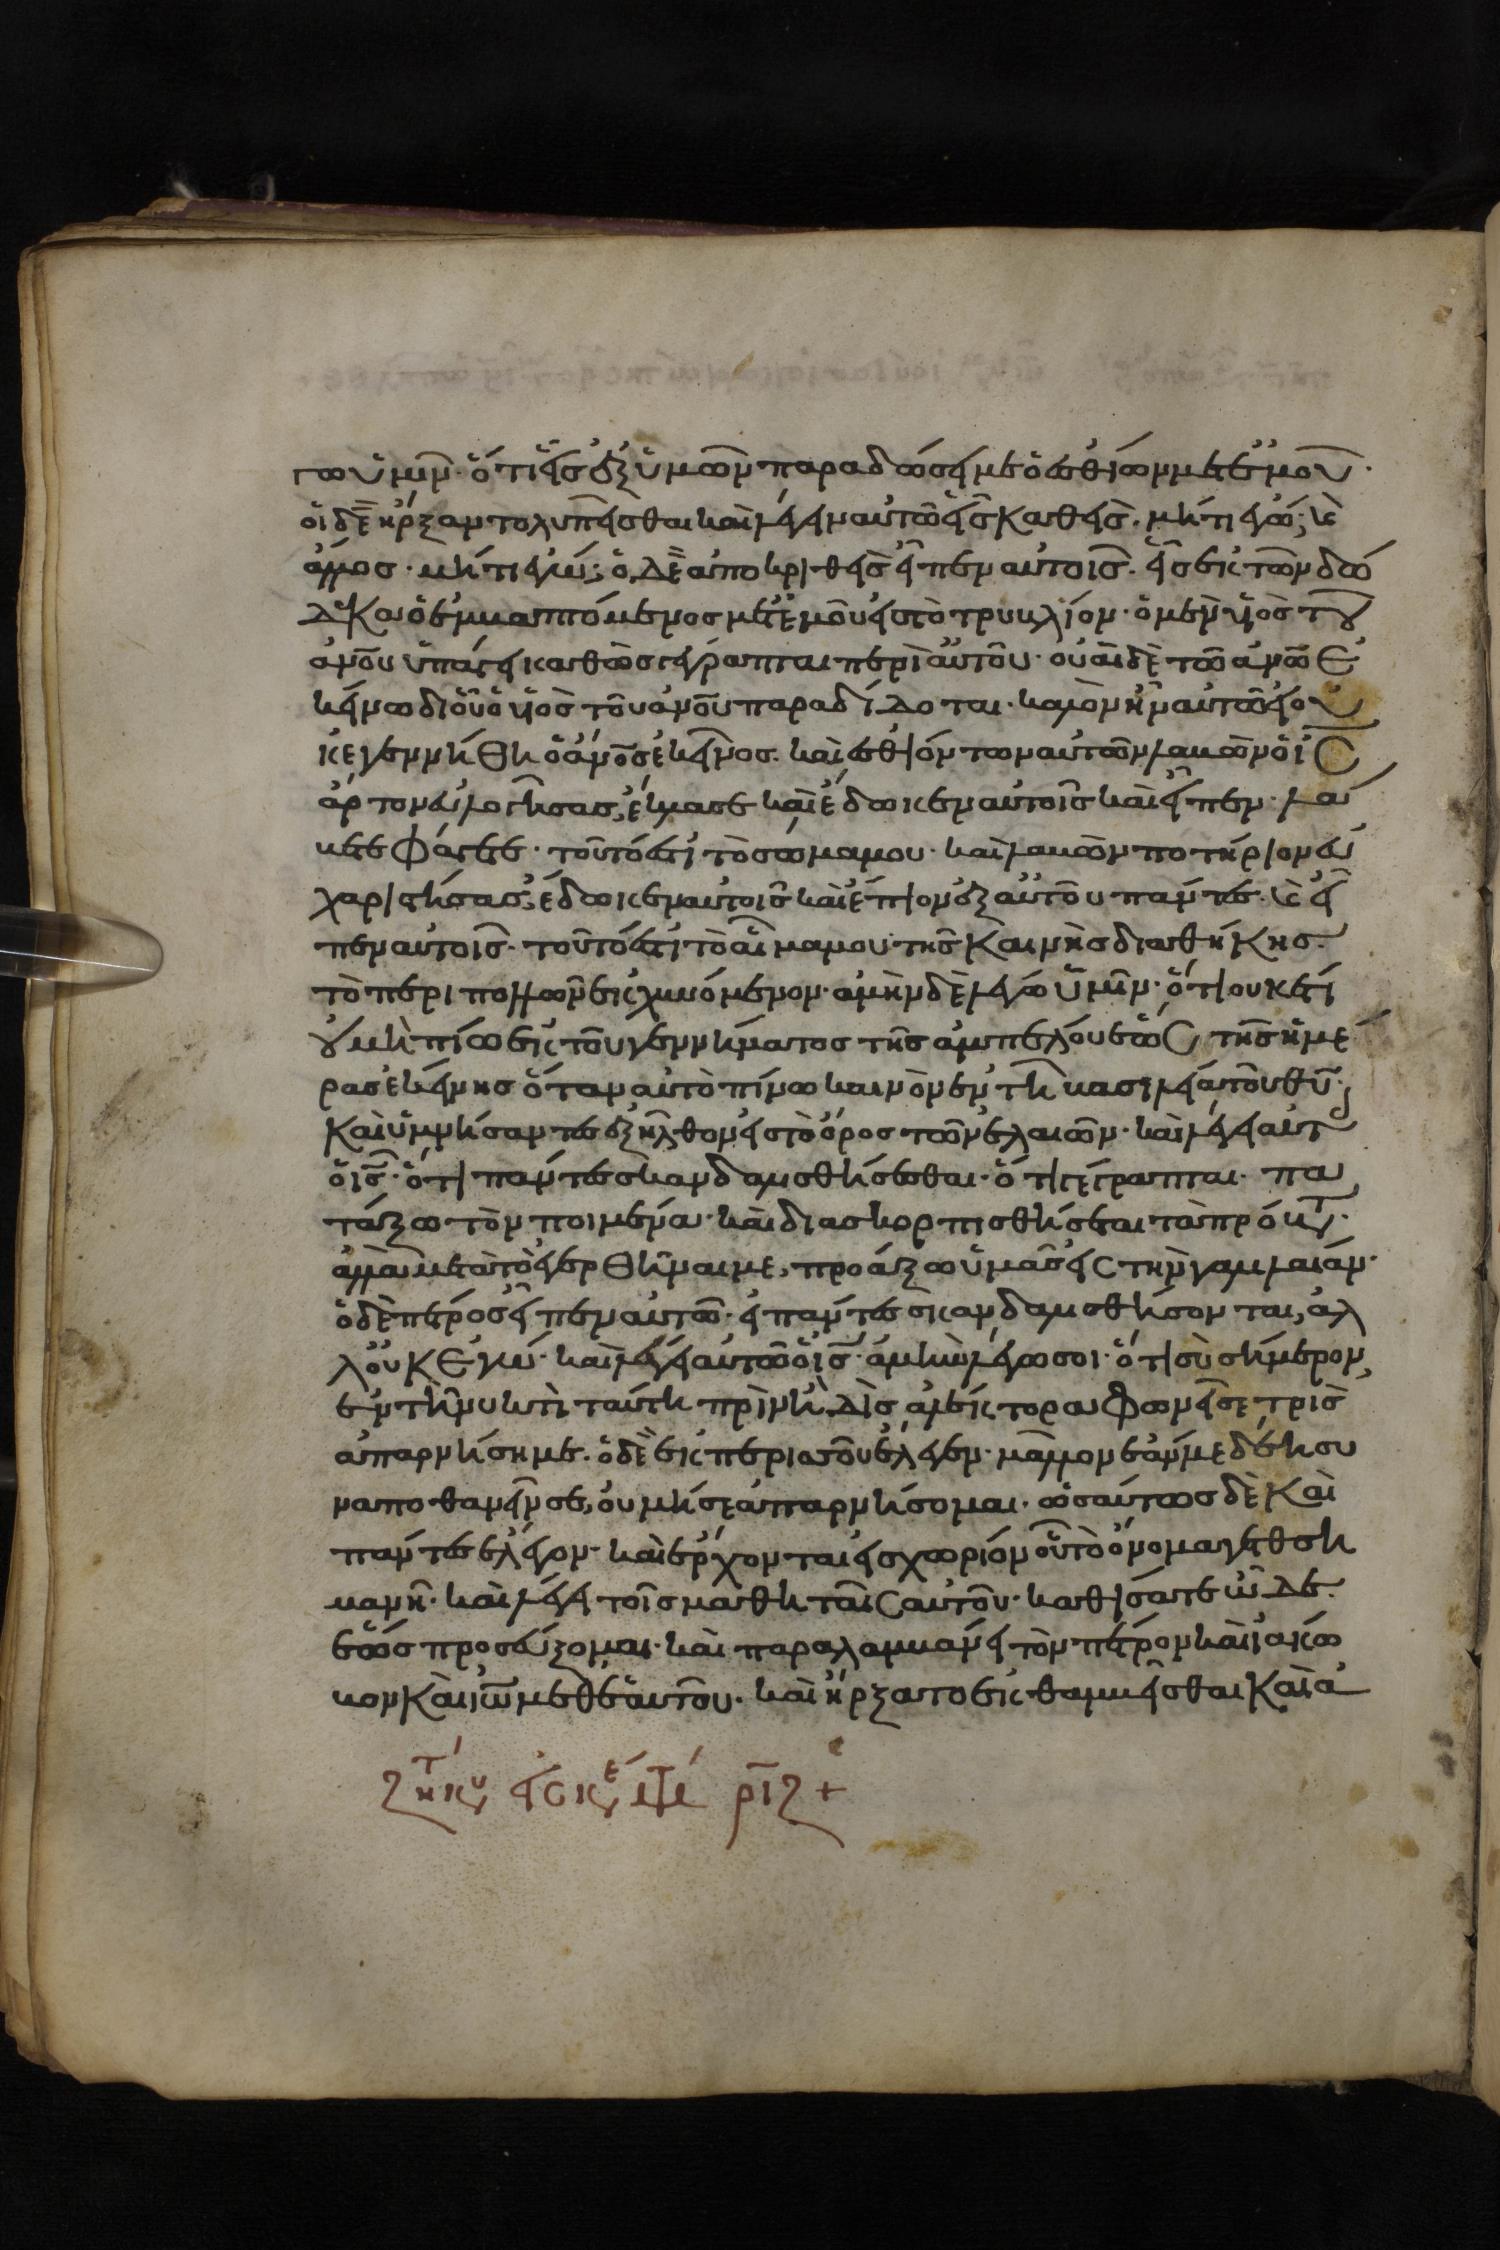 γω ὑμῖν· ὅτι εἷς ἐξ ὑμῶν παραδώσει με ὁ ἐσθίων μετ ἐμοῦ·
οἱ δὲ ἤρξαντο λυπεῖσθαι καὶ λέγειν αὐτῶ εἷς καθεῖς· μήτι ἐγώ; κὲ
ἄλλος· μήτι ἐγώ; ὁ δὲ ἀποκριθεὶς εἶπεν αὐτοῖς· εἷς ἐκ τῶν δώ
δεκα ὁ ἐμβαπτόμενος μετ ἐμοῦ εἰς τὸ τρυβλίον· ὁ μὲν υἱὸς του
ἀνου ὑπάγει καθὼς γέγραπται περὶ αὐτοῦ· οὐαὶ δὲ τῶ ανω ἐ
κείνω δι οὗ ὁ υἱὸς τοῦ ανου παραδίδοται· καλὸν ἦν αὐτῶ εἰ οὐ
κ ἐγεννήθη ὁ ανος ἐκεῖνος· καὶ ἐσθιόντων αὐτῶν λαβὼν ὁ ις
ἄρτον εὐλογήσας, ἔκλασε καὶ ἔδωκεν αὐτοῖς καὶ εἶπεν· λά
βετε φάγετε· τοῦτό ἐστι τὸ σῶμα μου· καὶ λαβὼν ποτήριον εὐ
χαριστήσας, ἔδωκεν αὐτοῖς καὶ ἔπιον ἐξ αὐτοῦ πάντες· κὲ εἶ
πεν αὐτοῖς· τοῦτό ἐστι τὸ αἷμα μου τῆς καινῆς διαθήκης·
τὸ περι πολλῶν ἐκχυνόμενον· ἀμὴν δὲ λέγω ὑμῖν· ὅτι οὐκέτι
οὐ μὴ πίω ἐκ τοῦ γεννήματος τῆς ἀμπέλου ἕως τῆς ἡμέ
ρας ἐκείνης ὅταν αὐτὸ πίνω καινὸν ἐν τῆ βασιλεία τοῦ θυ·
καὶ ὑμνήσαντες ἐξῆλθον εἰς τὸ ὄρος τῶν ἐλαιῶν· καὶ λέγει αὐτ
οῖς ὁ ις· ὅτι πάντες σκανδαλισθήσεσθαι· ὅτι γέγραπται· πα
τάξω τὸν ποιμένα· καὶ διασκορπισθήσεται τὰ πρόβατ·
ἀλλὰ μετὰ τὸ ἐγερθῆναι με, προάξω ὑμᾶς εἰς τὴν γαλιλαίαν·
ὁ δὲ πέτρος εἶπεν αὐτῶ· εἰ πάντες σκανδαλισθήσονται, ἀλ
λ οὐκ ἐγώ· καὶ λέγει αὐτῶ ὁ ις· ἀμὴν λέγω σοι· ὅτι σὺ σήμερον
ἐν τῆ νυκτὶ ταύτη πρὶν ἢ δὶς ἀλέκτορα φωνεῖσε τρὶς
ἀπαρνήση με· ὁ δὲ ἐκ περισσοῦ ἔλεγεν· μᾶλλον ἐάν με δέη συ
ναποθανεῖν σε, οὐ μή σε ἀπαρνήσομαι· ὡσαύτως δὲ καὶ
πάντες ἔλεγον· καὶ ἔρχονται εἰς χωρίον οὗ τὸ ὄνομα γεθση
μανῆ· καὶ λέγει τοῖς μαθηταῖς αὐτοῦ· καθίσατε ὧδε·
ἕως προσεύξομαι· καὶ παραλαμβάνει τὸν πέτρον καὶ ἰάκω
βον καὶ ιω μεθ ἑαυτοῦ· καὶ ἤρξατο ἐκθαμβεῖσθαι καὶ ἀ